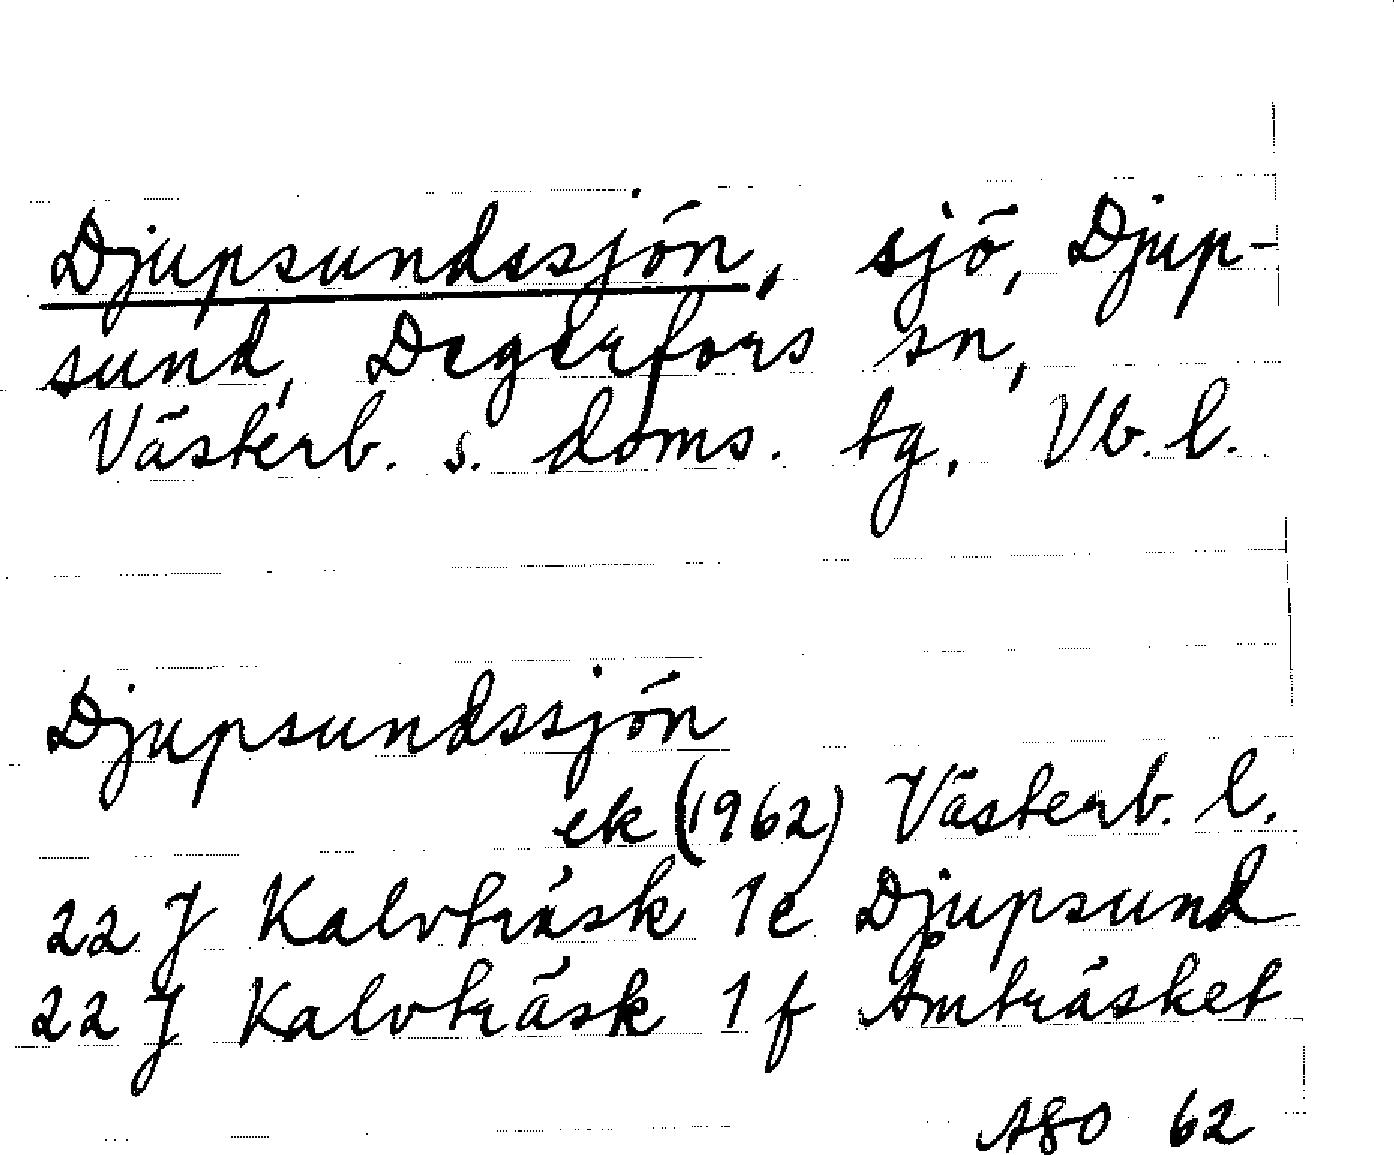 Djupsundssjön, sjö, Djup-
sund, Degerfors sn,
Västerb. s. doms. tg, Vb. l.
Djupsundssjön
ek (1962) Västerb. l.
22 J Kalvträsk 1e Djupsund
22 J Kalvträsk 1f Åmträsket
62